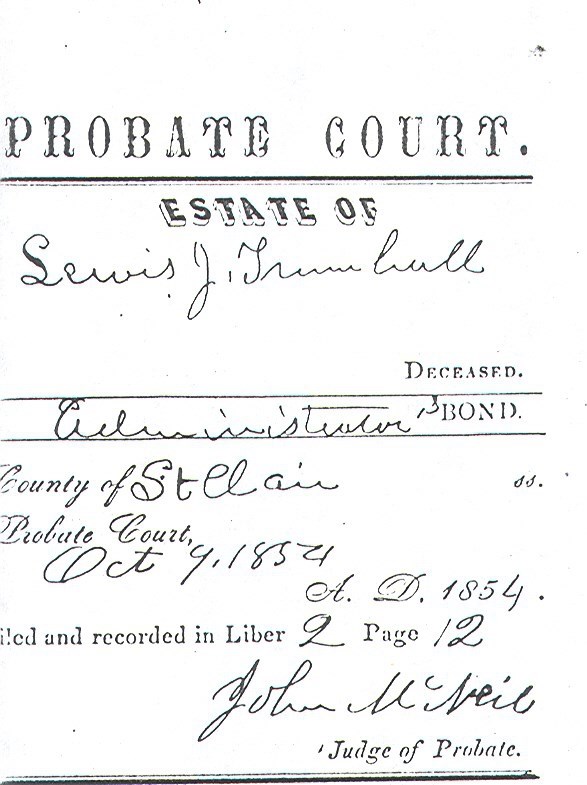 PROBATE COURT.
ESTATE OF
Lewis J. Trumbull
DECEASED.
Administrator's BOND.
County of St Clair ss.
Probate Court,
Oct 9, 1854
A. D. 1854.
iled and recorded in Liber 2 Page 12
John McNeil
Judge of Probate.